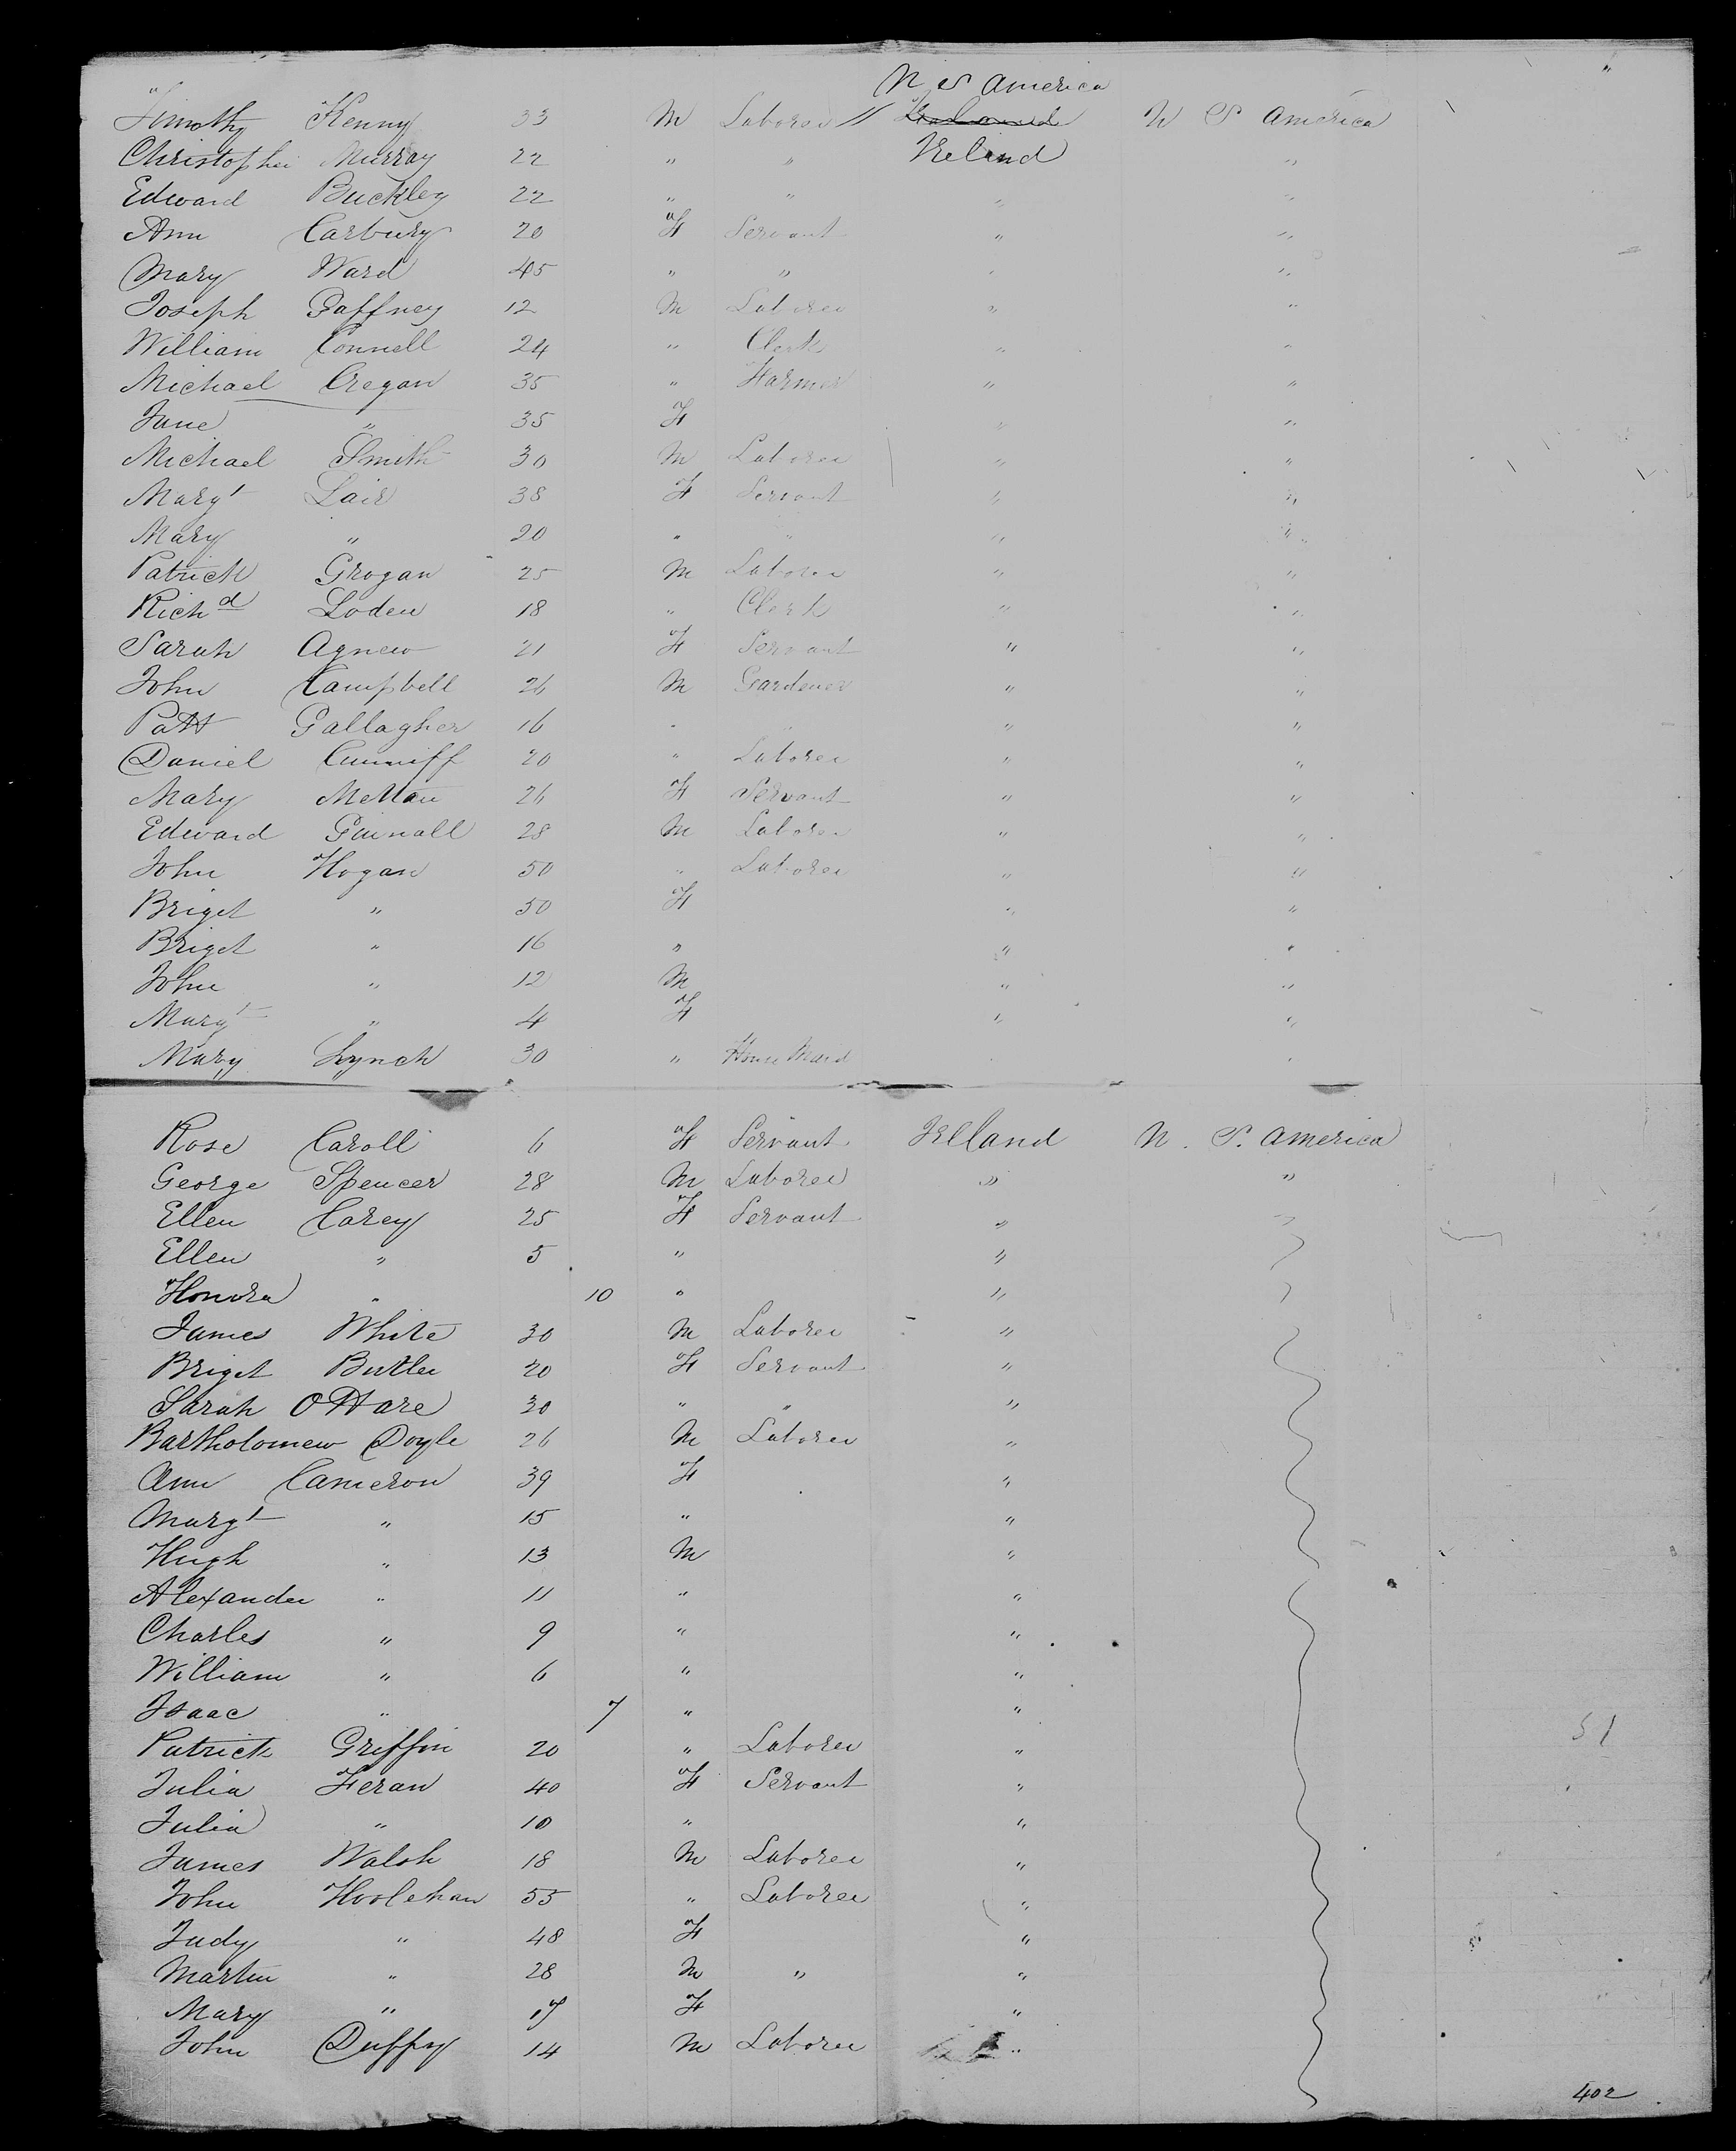 N S America
Timothy Kenny 33 M Laborer // Ireland N S America
Christopher Murray 22 " " Ireland "
Edward Buckley 22 " " " "
Ann Carbury 20 F Servant " "
Mary Ward 45 " " " "
Joseph Gaffney 12 M Laborer " "
William Connell 24 " Clerk " "
Michael Cregan 35 " Farmer " "
Jane " 35 F " "
Michael Smith 30 M Laborer " "
Margt Lair 38 F Servant " "
Mary " 20 " " " "
Patrick Grogan 25 M Laborer " "
Richd Loden 18 " Clerk " "
Sarah Agnew 21 F Servant " "
John Campbell 26 M Gardener " "
Patt Gallagher 16 " " " "
Daniel Cunniff 20 " Laborer " "
Mary 26 F Servant " "
Edward 28 M Laborer " "
John Hogan 50 " Laborer " "
Briget " 50 F " "
Briget " 16 " " "
John " 12 M " "
Margt " 4 F " "
Mary Lynch 30 " House Maid " "
Rose Caroll 6 F Servant Ireland N. S. America
George Spencer 28 M Laborer " "
Ellen Carey 25 F Servant "
Ellen " 5 " "
Honora " 10 " "
James White 30 M Laborer "
Briget Butler 20 F Servant "
Sarah OHare 30 " " "
Bartholomew Doyle 26 M Laborer "
Ann Cameron 39 F "
Margt " 15 " "
Hugh " 13 M "
Alexander " 11 " "
Charles " 9 " "
William " 6 " "
Isaac " 7 " "
Patrick Griffin 20 " Laborer " 51
Julia Feran 40 F Servant "
Julia " 10 " "
James Walsh 18 M Laborer "
John Hoolehan 55 " Laborer "
Judy " 48 F "
Martin " 28 M " "
Mary " 17 F "
John Duffy 14 M Laborer "
402